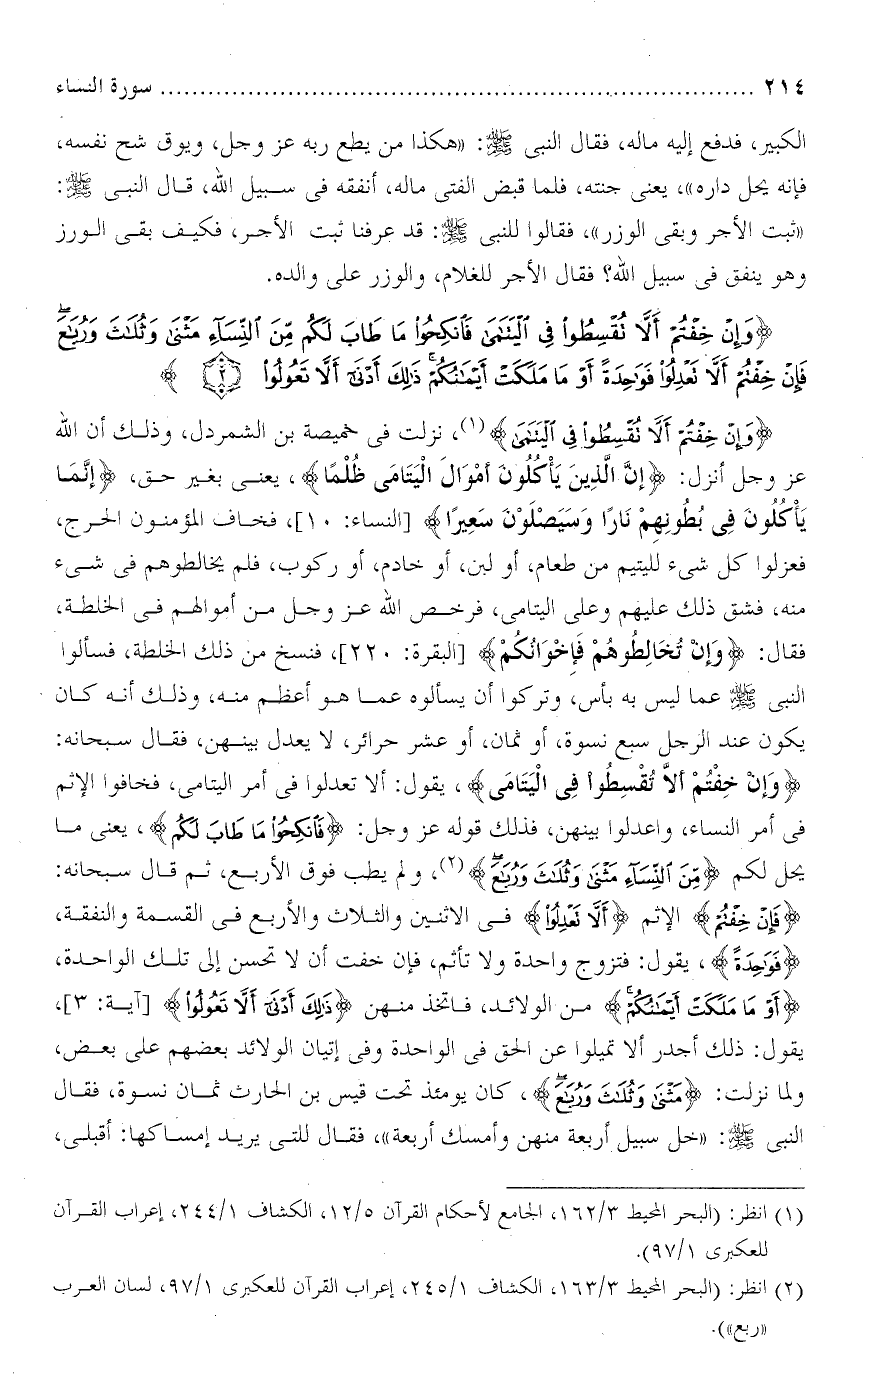 ٢١٤ ........................................................................ سورة النساء
الكبير، فدفع إليه ماله، فقال النبى ﷺ: «هكذا من يطع ربه عز وجل، ويوق شح نفسه،
فإنه يحل داره»، يعنى جنته، فلما قبض الفتى ماله، أنفقه فى سبيل الله، قال النبى ﷺ:
«ثبت الأجر وبقى الوزر»، فقالوا للنبى ﷺ: قد عرفنا ثبت الأجر، فكيف بقى الورز
وهو ينفق فى سبيل الله؟ فقال الأجر للغلام، والوزر على والده.
﴿وَإِنْ خِفْتُمْ أَلَّا نُقْسِطُوا۟ فِى ٱلْيَتَٰمَىٰ فَٱنكِحُوا۟ مَا طَابَ لَكُم مِّنَ ٱلنِّسَآءِ مَثْنَىٰ وَثُلَٰثَ وَرُبَٰعَ ۖ
فَإِنْ خِفْتُمْ أَلَّا نَعْدِلُوا۟ فَوَٰحِدَةً أَوْ مَا مَلَكَتْ أَيْمَٰنُكُمْ ۚ ذَٰلِكَ أَدْنَىٰٓ أَلَّا تَعُولُوا۟ ٣ ﴾
﴿وَإِنْ خِفْتُمْ أَلَّا نُقْسِطُوا۟ فِى ٱلْيَتَٰمَىٰ﴾ (١)، نزلت فى خميصة بن الشمردل، وذلك أن الله
عز وجل أنزل: ﴿إِنَّ الَّذِينَ يَأْكُلُونَ أَمْوَالَ الْيَتَامَى ظُلْمًا﴾، يعنى بغير حق، ﴿إِنَّمَا
يَأْكُلُونَ فِى بُطُونِهِمْ نَارًا وَسَيَصْلَوْنَ سَعِيرًا﴾ [النساء: ١٠]، فخاف المؤمنون الحرج،
فعزلوا كل شىء لليتيم من طعام، أو لبن، أو خادم، أو ركوب، فلم يخالطوهم فى شىء
منه، فشق ذلك عليهم وعلى اليتامى، فرخص الله عز وجل من أموالهم فى الخلطة،
فقال: ﴿وَإِنْ تُخَالِطُوهُمْ فَإِخْوَانُكُمْ﴾ [البقرة: ٢٢٠]، فنسخ من ذلك الخلطة، فسألوا
النبى ﷺ عما ليس به بأس، وتركوا أن يسألوه عما هو أعظم منه، وذلك أنه كان
يكون عند الرجل سبع نسوة، أو ثمان، أو عشر حرائر، لا يعدل بينهن، فقال سبحانه:
﴿وَإِنْ خِفْتُمْ أَلاَّ تُقْسِطُواْ فِى الْيَتَامَى﴾، يقول: ألا تعدلوا فى أمر اليتامى، فخافوا الإثم
فى أمر النساء، واعدلوا بينهن، فذلك قوله عز وجل: ﴿فَٱنكِحُوا۟ مَا طَابَ لَكُم﴾، يعنى ما
يحل لكم ﴿مِّنَ ٱلنِّسَآءِ مَثْنَىٰ وَثُلَٰثَ وَرُبَٰعَ ۖ﴾ (٢)، ولم يطب فوق الأربع، ثم قال سبحانه:
﴿فَإِنْ خِفْتُمْ﴾ الإثم ﴿أَلَّا نَعْدِلُوا۟﴾ فى الاثنين والثلاث والأربع فى القسمة والنفقة،
﴿فَوَٰحِدَةً﴾، يقول: فتزوج واحدة ولا تأثم، فإن خفت أن لا تحسن إلى تلك الواحدة،
﴿أَوْ مَا مَلَكَتْ أَيْمَٰنُكُمْ ۚ﴾ من الولائد، فاتخذ منهن ﴿ذَٰلِكَ أَدْنَىٰٓ أَلَّا تَعُولُوا۟﴾ [آية: ٣]،
يقول: ذلك أجدر ألا تميلوا عن الحق فى الواحدة وفى إتيان الولائد بعضهم على بعض،
ولما نزلت: ﴿مَثْنَىٰ وَثُلَٰثَ وَرُبَٰعَ ۖ﴾، كان يومئذ تحت قيس بن الحارث ثمان نسوة، فقال
النبى ﷺ: «خل سبيل أربعة منهن وأمسك أربعة»، فقال للتى يريد إمساكها: أقبلى،
(١) انظر: (البحر المحيط ١٦٢/٣، الجامع لأحكام القرآن ١٢/٥، الكشاف ٢٤٤/١، إعراب القرآن
للعكبرى ٩٧/١).
(٢) انظر: (البحر المحيط ١٦٣/٣، الكشاف ٢٤٥/١، إعراب القرآن للعكبرى ٩٧/١، لسان العرب
«ربع»).